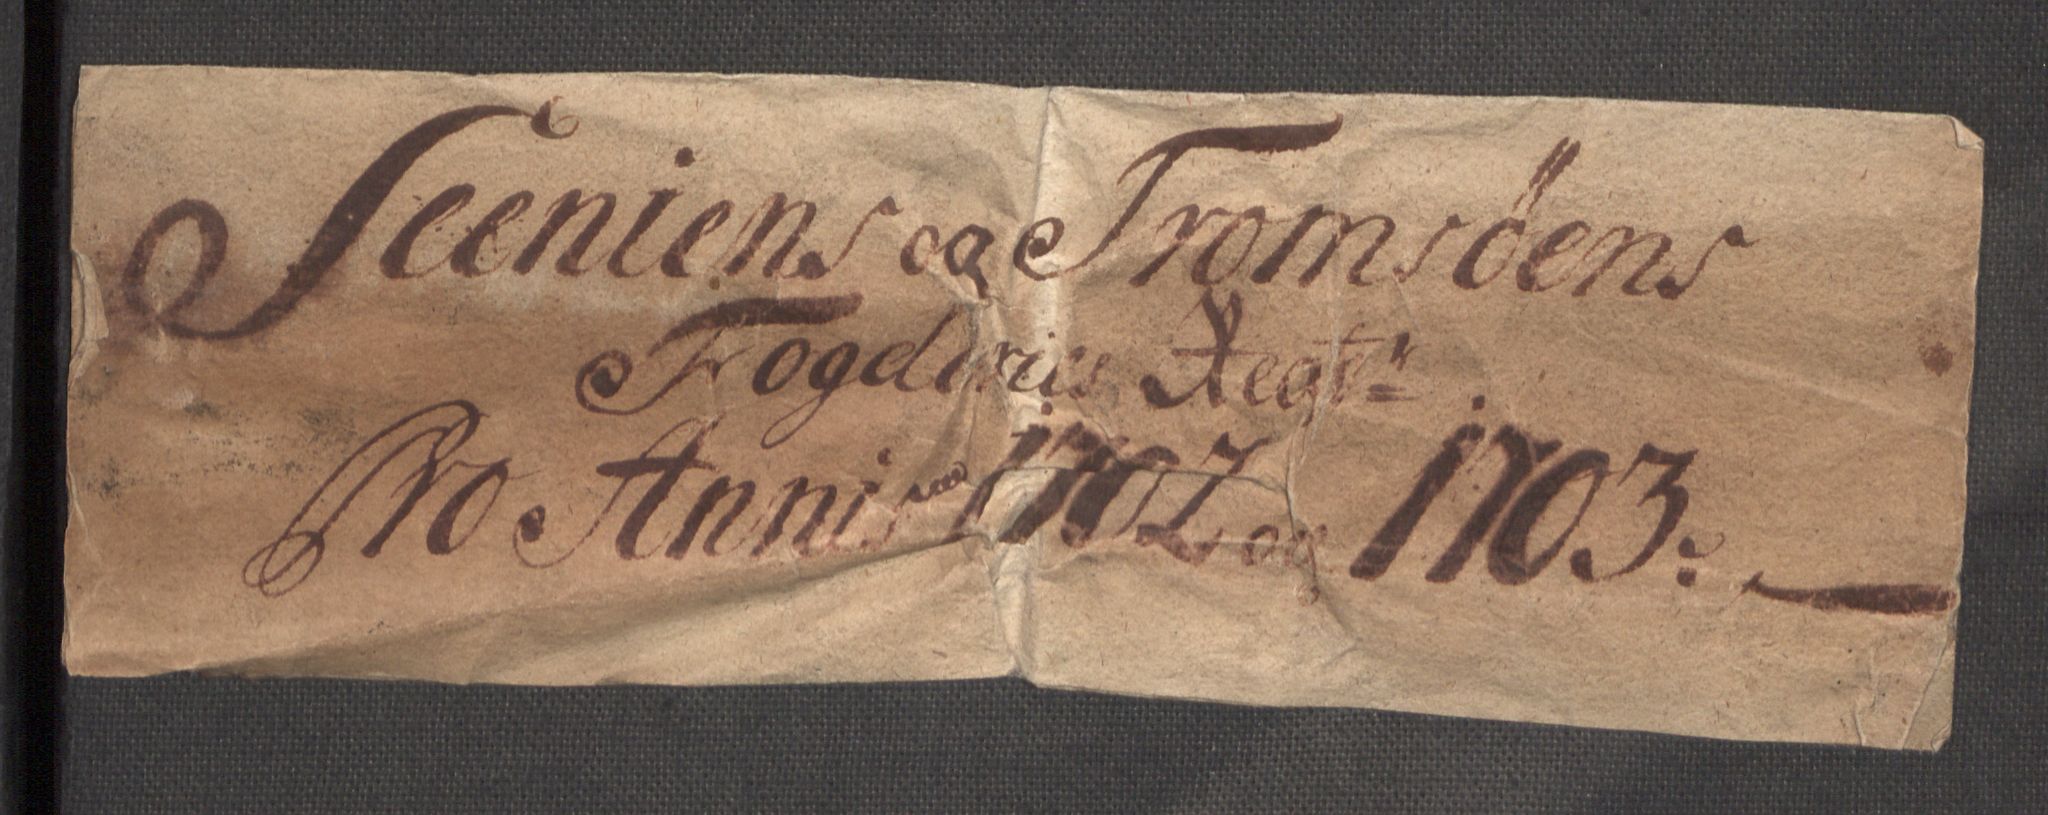 Seeniens og Tromsöens
Fogderies Regtr
Pro Annis 1702 og 1703.